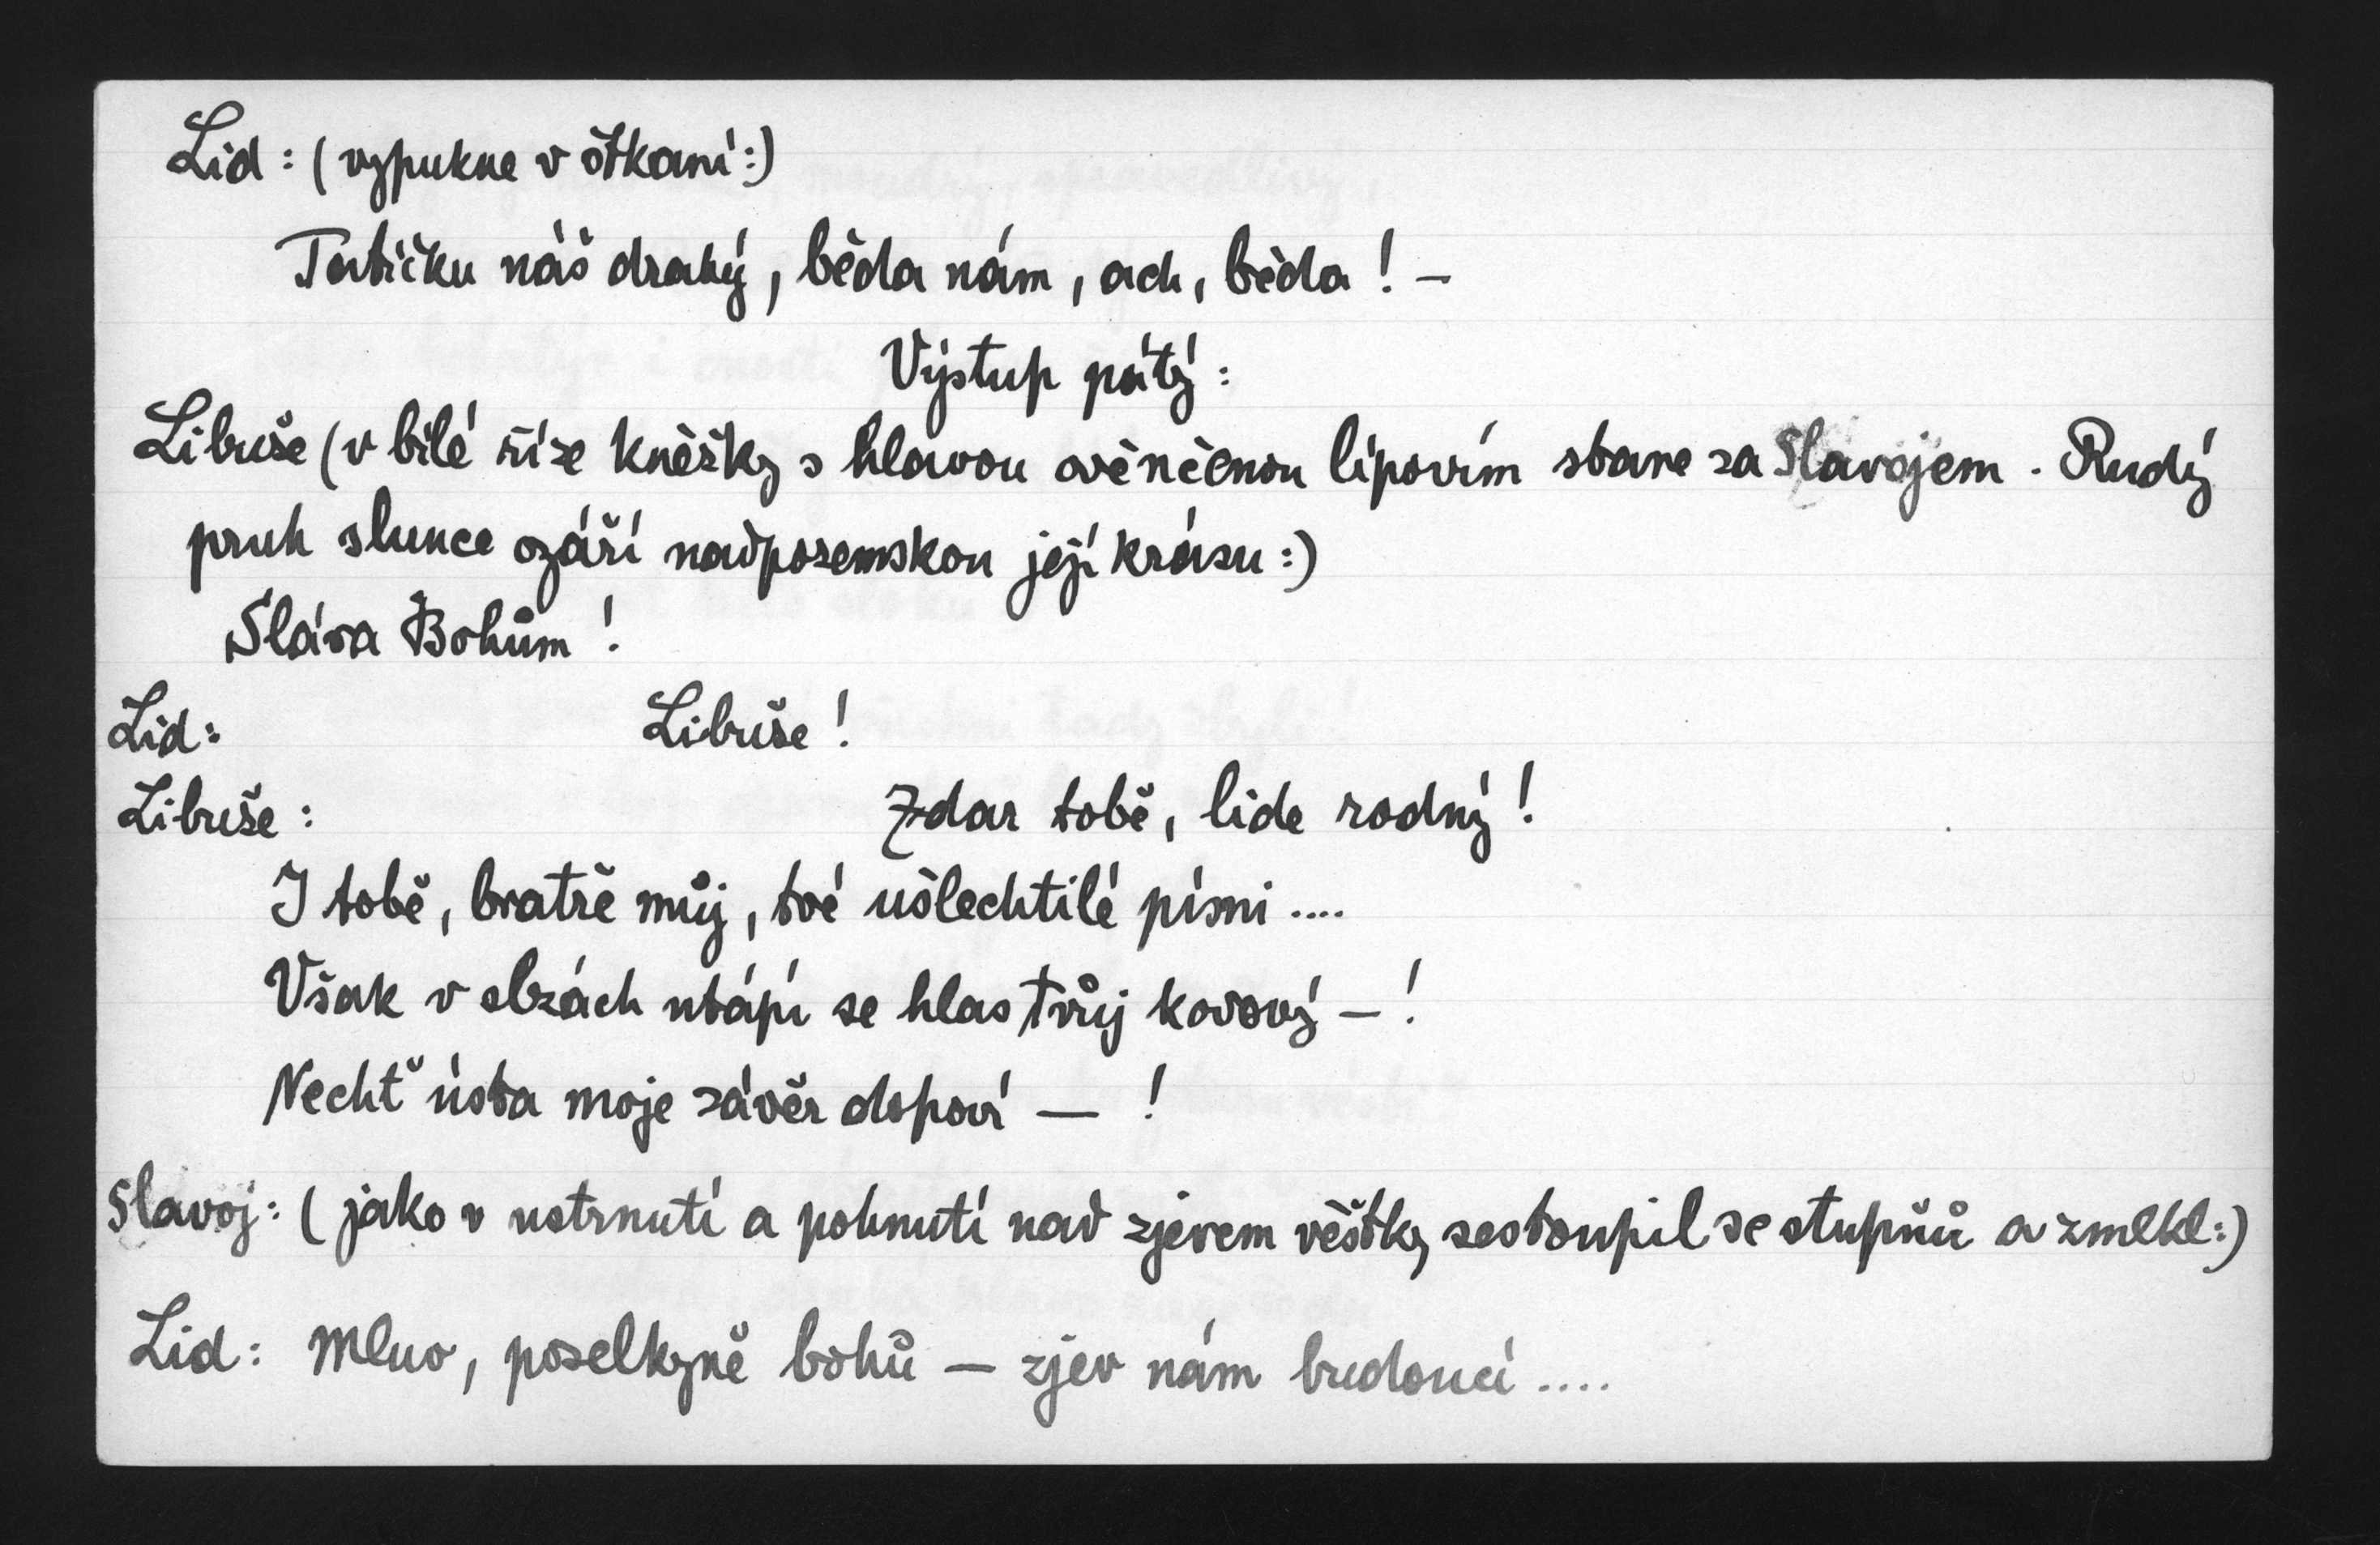 Lid: (vypukne v štkaní:)
Tatíčku náš drahý, běda nám, ach, běda! –
Výstup pátý:
Libuše (v bílé říze kněžky s hlavou ověnčenou lipovím stane za Slavojem. Rudý
pruh slunce ozáří nadpozemskou její krásu:)
Sláva Bohům!
Lid: Libuše!
Libuše: Zdar tobě, lide rodný!
I tobě, bratře můj, tvé ušlechtilé písni ....
Však v slzách utápí se hlas tvůj kovový – !
Nechť ústa moje závěr dopoví — !
Slavoj: (jako v ustrnutí a pohnutí nad zjevem věštky sestoupil se stupňů a zmlkl:)
Lid: Mluv, poselkyně bohů – zjev nám budoucí ....